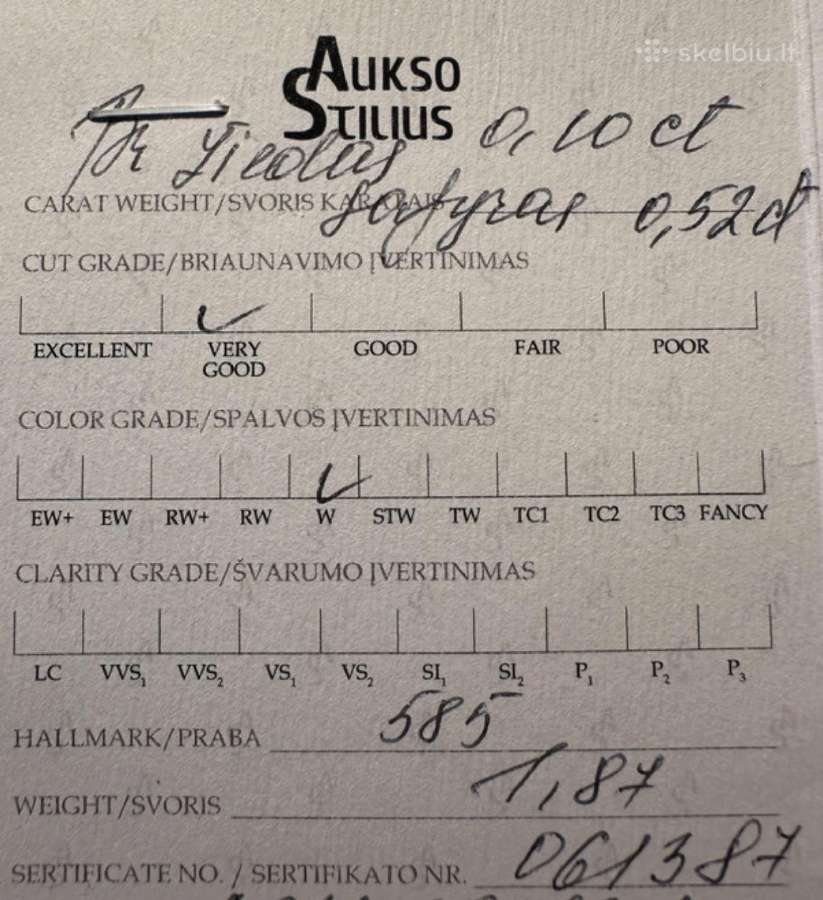 skelbiu.lt
AUKSO
STILIUS
Žiedas 0,10 ct
CARAT WEIGHT/SVORIS KARATAIS safyras 0,52 ct
CUT GRADE/BRIAUNAVIMO ĮVERTINIMAS
EXCELLENT VERY GOOD GOOD FAIR POOR
COLOR GRADE/SPALVOS ĮVERTINIMAS
EW+ EW RW+ RW W STW TW TC1 TC2 TC3 FANCY
CLARITY GRADE/ŠVARUMO ĮVERTINIMAS
LC VVS1 VVS2 VS1 VS2 SI1 SI2 P1 P2 P3
HALLMARK/PRABA 585
WEIGHT/SVORIS 1,87
SERTIFICATE NO. / SERTIFIKATO NR. 061387